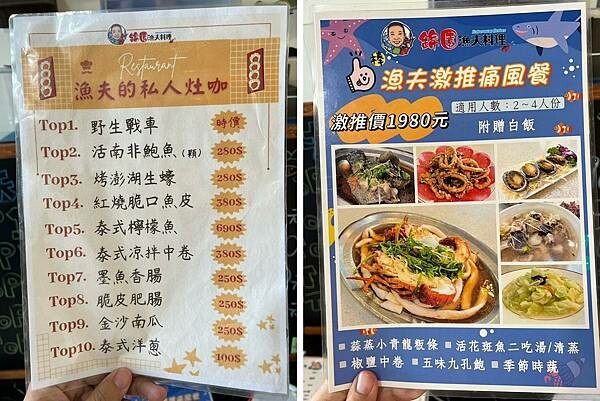 錦園漁夫料理
Restaurant
漁夫的私人灶咖
Top1. 野生戰車 時價
Top2. 活南非鮑魚(顆) 280$
Top3. 烤澎湖生蠔 280$
Top4. 紅燒脆口魚皮 380$
Top5. 泰式檸檬魚 690$
Top6. 泰式涼拌中卷 380$
Top7. 墨魚香腸 250$
Top8. 脆皮肥腸 250$
Top9. 金沙南瓜 250$
Top10. 泰式洋蔥 100$
錦園漁夫料理
漁夫激推痛風餐
激推價1980元
適用人數:2~4人份
附贈白飯
■蒜蒸小青龍粄條 ■活花斑魚二吃湯/清蒸
■椒鹽中卷 ■五味九孔鮑 ■季節時蔬